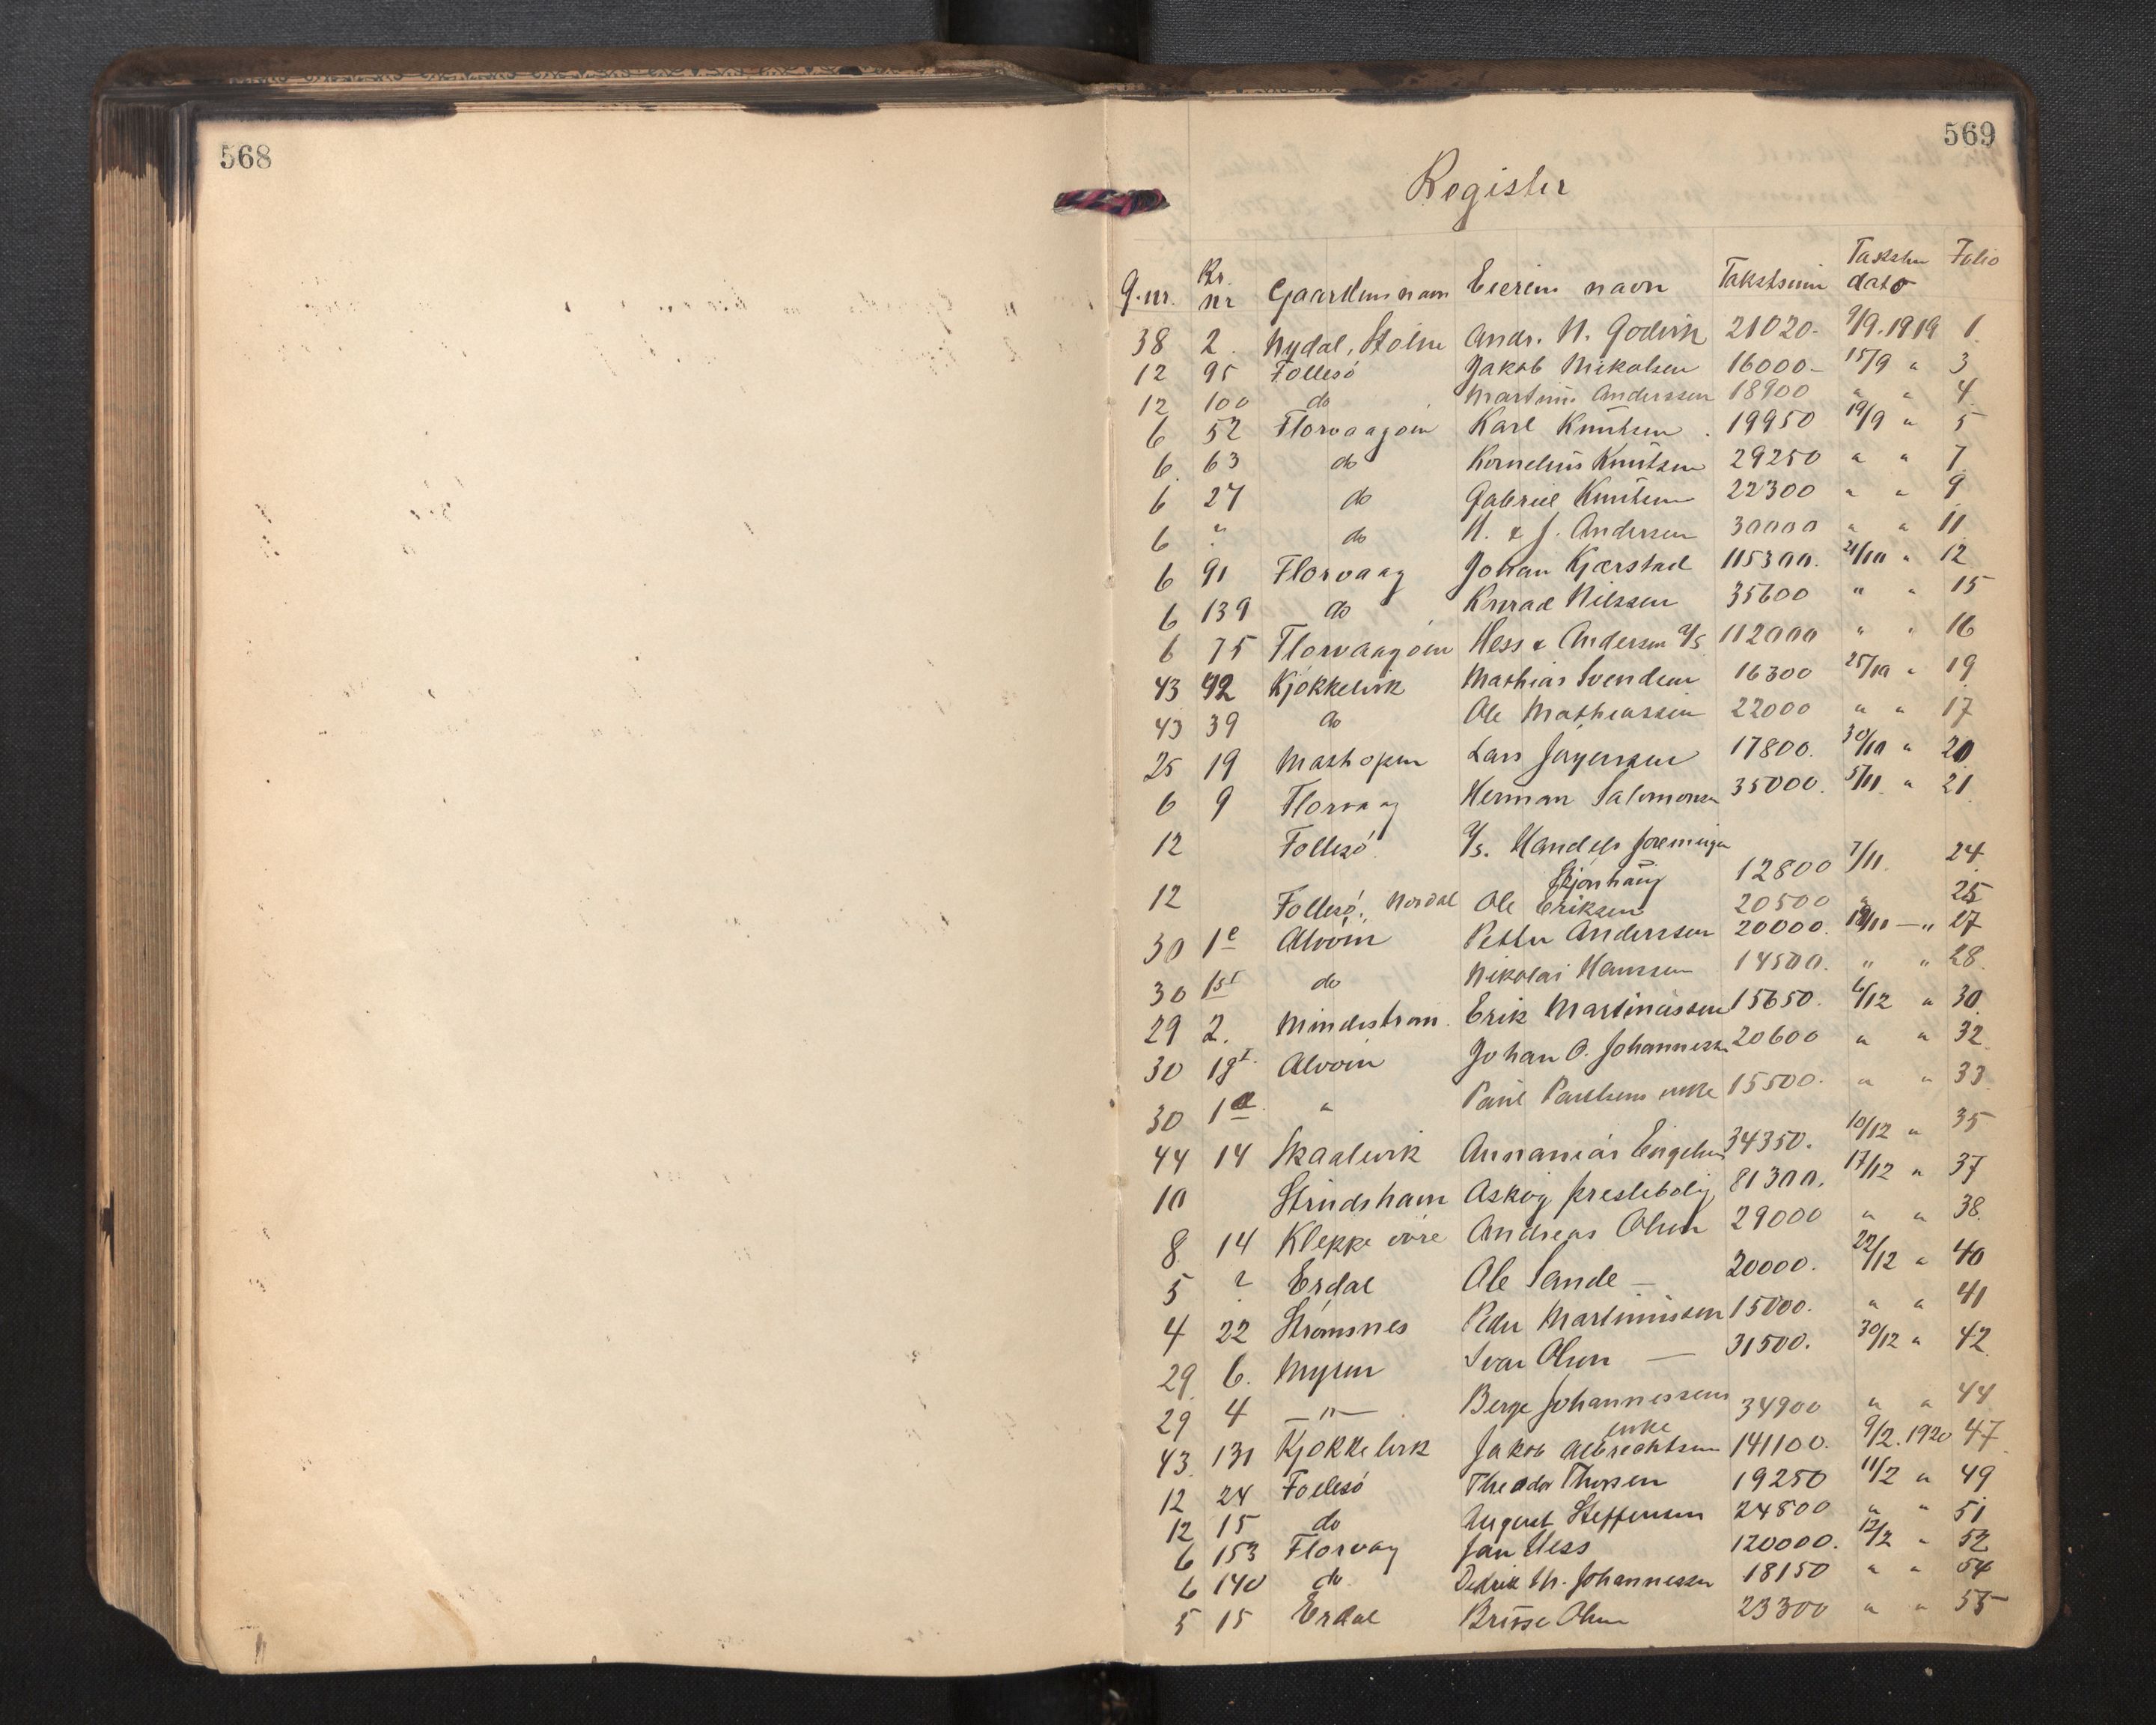 568
569
Register
G.nr. Br. nr Gaardens navn Eierens navn Takstsum Takstens dato Folio
38 2. Nydal, Stolne Andr. N. Godvik 21020.- 9/9.1919 1
12 95 Follesö Jakob Mikalsen 16000- 15/9 " 3
12 100 do Martinus Anderssen 18900 " " 4
6 52 Florvaagöen Karl Knutsen. 19950 19/9 " 5
6 63 do Kornelius Knutsen 29250 " " 7
6 27 do Gabriel Knutsen 22300 " " 9
6 " do N. & J. Andersen 30000 " " 11
6 91 Florvaag Johan Kjærstad 115300. 21/10 " 12
6 139 do Konrad Nilssen 35600 " " 15
6 75 Florvaagöen Hess & Andersen A/S 112000 " " 16
43 42 Kjökkelvik Mathias Svendsen 16300 25/10 " 19
43 39 do Ole Mathiassen 22000 " " 17
25 19 Mathopen Lars Jörgensen 17800. 30/10 " 20
6 9 Florvaag Herman Salomonsen 35000. 5/11. " 21
12 Follesö A/S. Handelsforeningen
Skjønhaug 12800 7/11. 24
12 Follesö, Nordal Ole Eriksen 20500 " 25
30 1e Alvöen Petter Anderssen 20000. 18/11 — " 27
30 1s1 do Nikolai Hanssen 14500. " " 28
29 2. Mindestrøm. Erik Martinussen 15650. 6/12 " 30
30 1g1. Alvöen Johan O. Johannessen 20600 " " 32
30 1a. " Paul Paulsens enke 15500. " " 33
44 14 Skaalevik Annanias Engelsen 34350. 10/12 " 35
10 Strudshavn Askøy prestebolig 81300. 17/12 " 37
8 14 Kleppe övre Andreas Olsen 29000 " " 38
5 ? Erdal Ole Sande — 20000. 22/12 " 40
4 22 Strömsnes Peder Martinussen 15000. " " 41
29 6. Myren Ivar Olsen — 31500. 30/12 " 42
29 4 —"— Berge Johannessens
enke 34900 " " 44
43. 131 Kjökkelvik Jakob Albrechtsen 141100. 9/2.1920 47
12 24 Follesö Theodor Thorsen 19250 11/2 " 49
12 15 do August Steffensen 24800 " " 51
6 153 Florvag Jan Hess 120000. 12/2 " 52
6 140 do Didrik M. Johannessen 18150 " " 54
5 15 Erdal Brisse Olsen 23300 " " 55